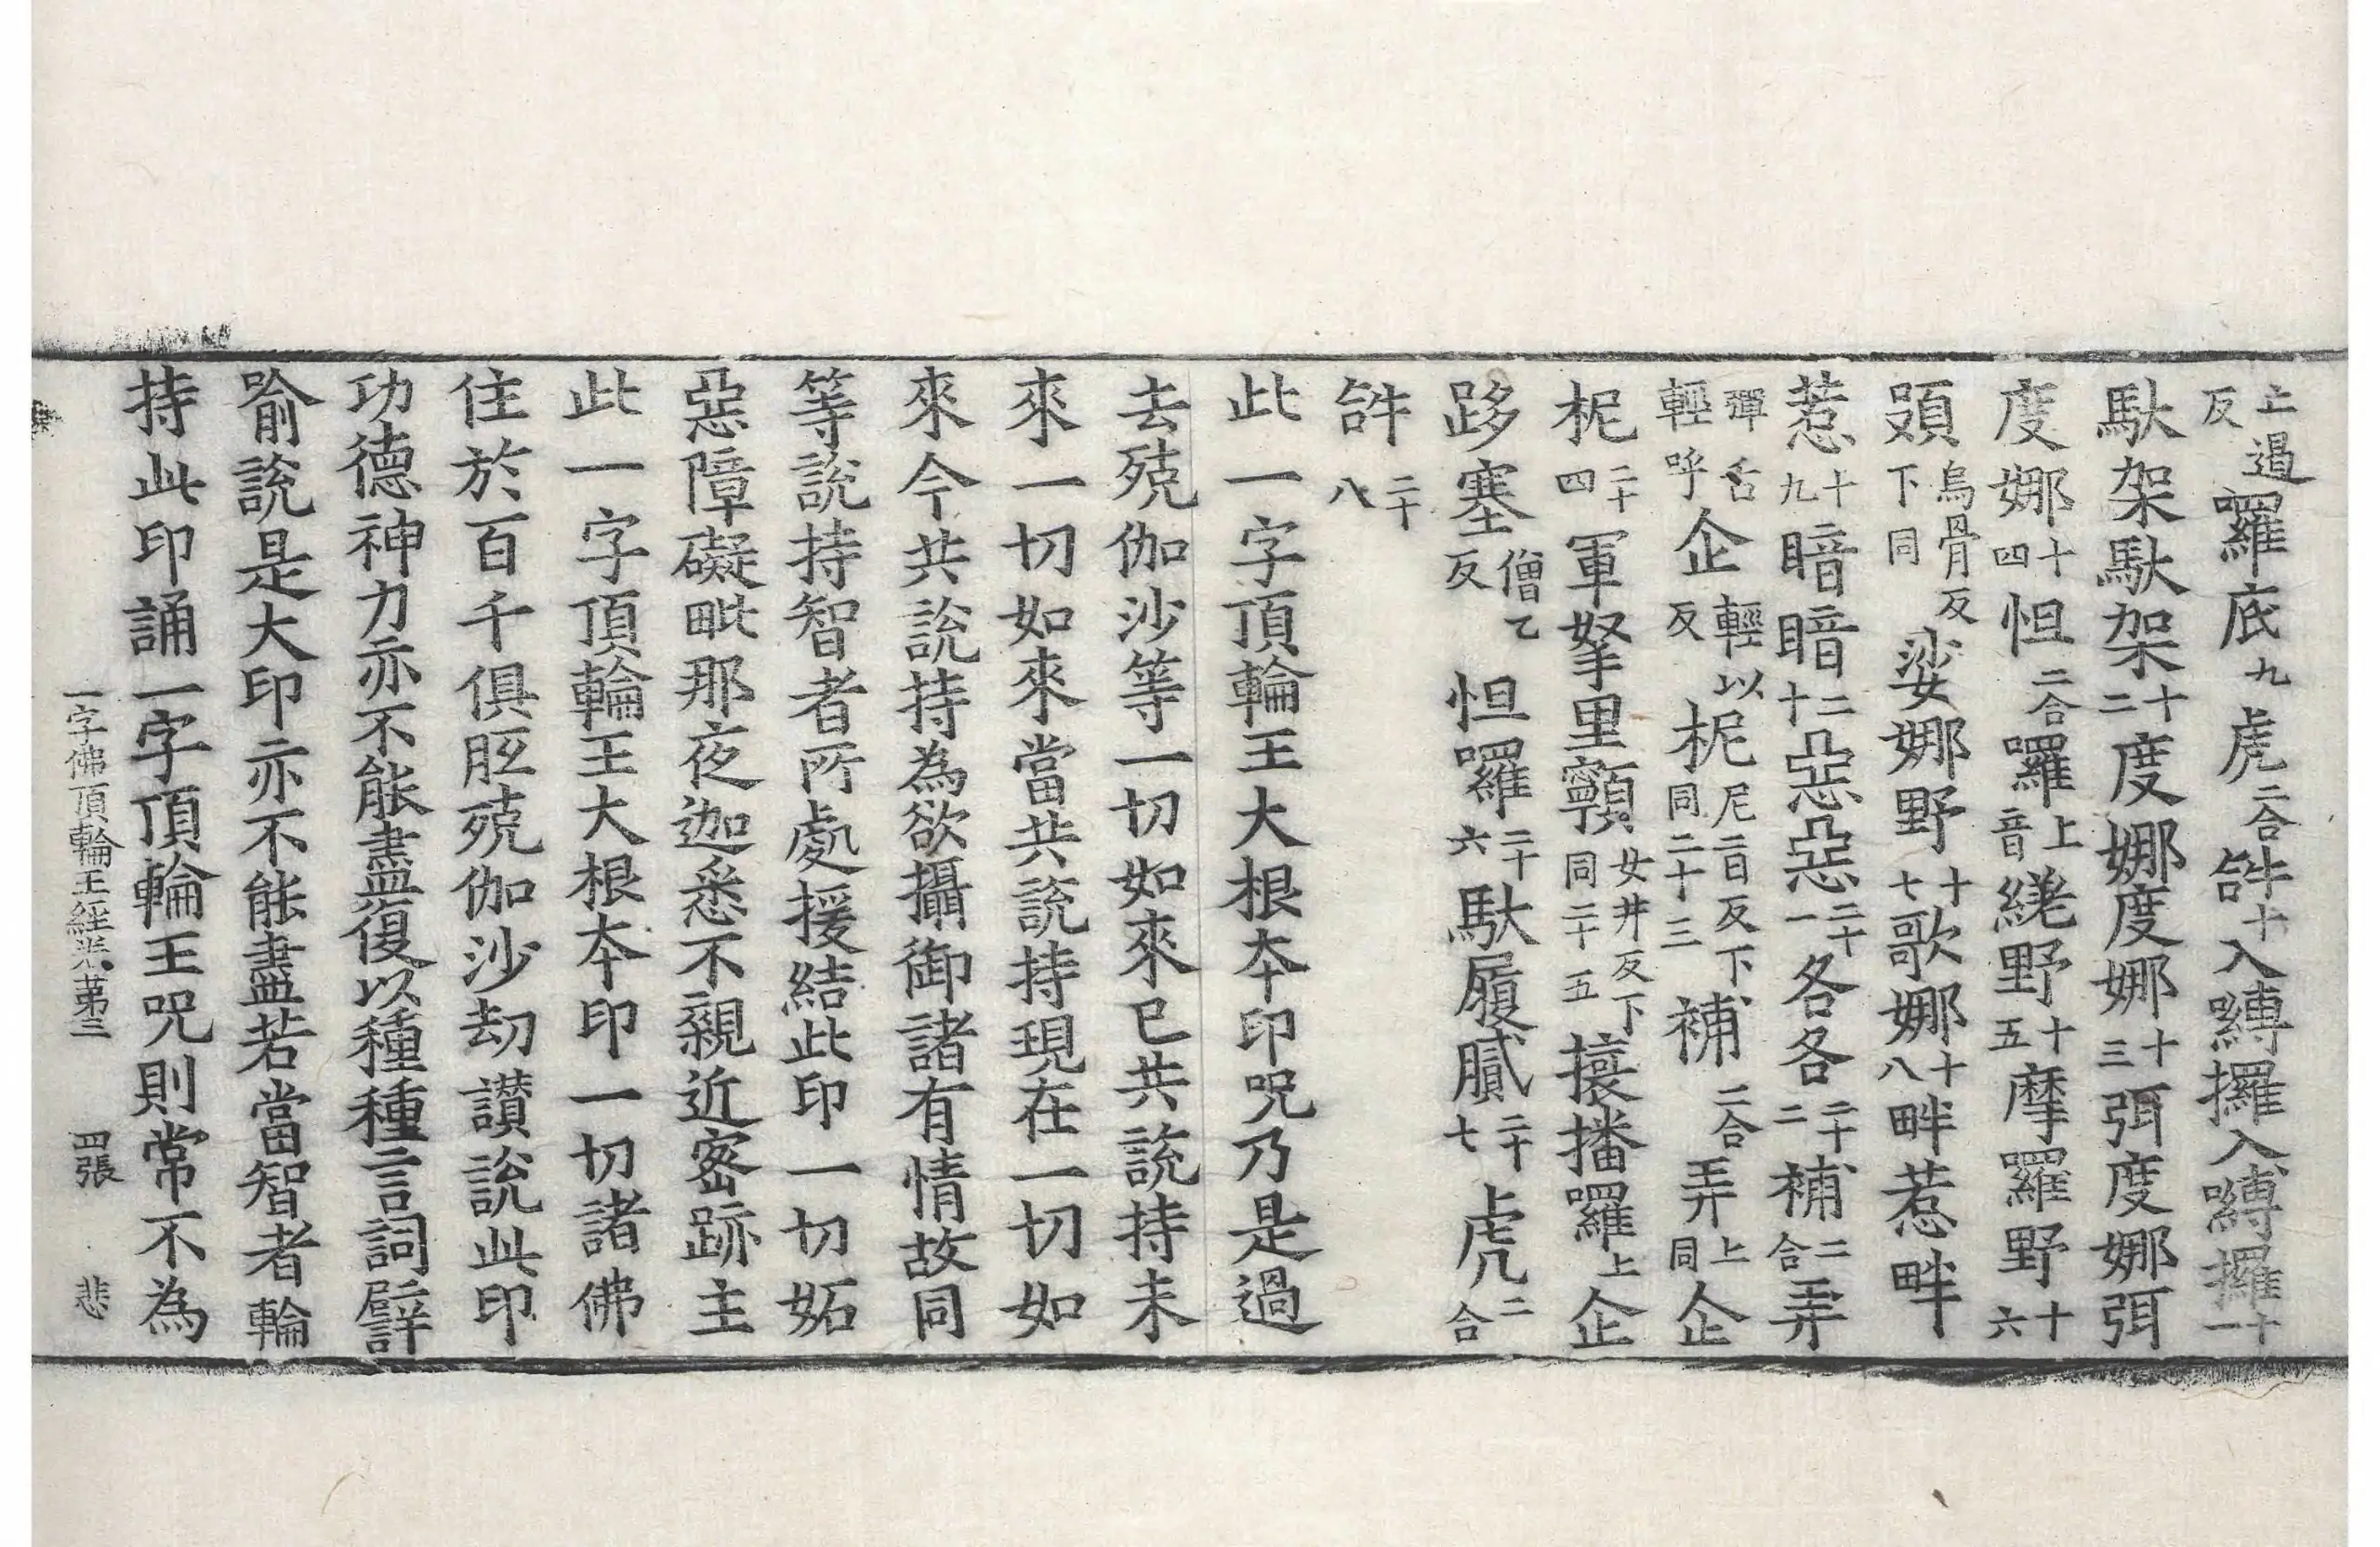 止過反囉底九虎二合𤙖十入嚩攞入嚩攞十一
馱架馱架十二度娜度娜十三弭度娜弭
度娜十四怛二合囉上音繞野十五摩羅野十六
頞烏骨反下同娑娜野十七歌娜十八畔惹畔
惹十九暗暗二十惡惡二十一各各二十二補二合弄
彈舌輕呼企輕以反柅尼二日反下同二十三補二合弄上同企
柅二十四軍拏里顫女井反下同二十五攘播羅上企
跢塞僧乙反怛囉二十六馱履膩二十七虎二合
𤙖二十八
此一字頂輪王大根本印呪乃是過
去殑伽沙等一切如來已共說持未
來一切如來當共說持現在一切如
來今共說持為欲攝御諸有情故同
等說持智者所處援結此印一切妬
惡障礙毗那夜迦悉不親近密跡主
此一字頂輪王大根本印一切諸佛
住於百千俱胝殑伽沙劫讚說此印
功德神力亦不能盡復以種種言詞譬
喻說是大印亦不能盡若當智者輪
持此印誦一字頂輪王呪則常不為
一字佛頂輪王經卷第三 四張 悲